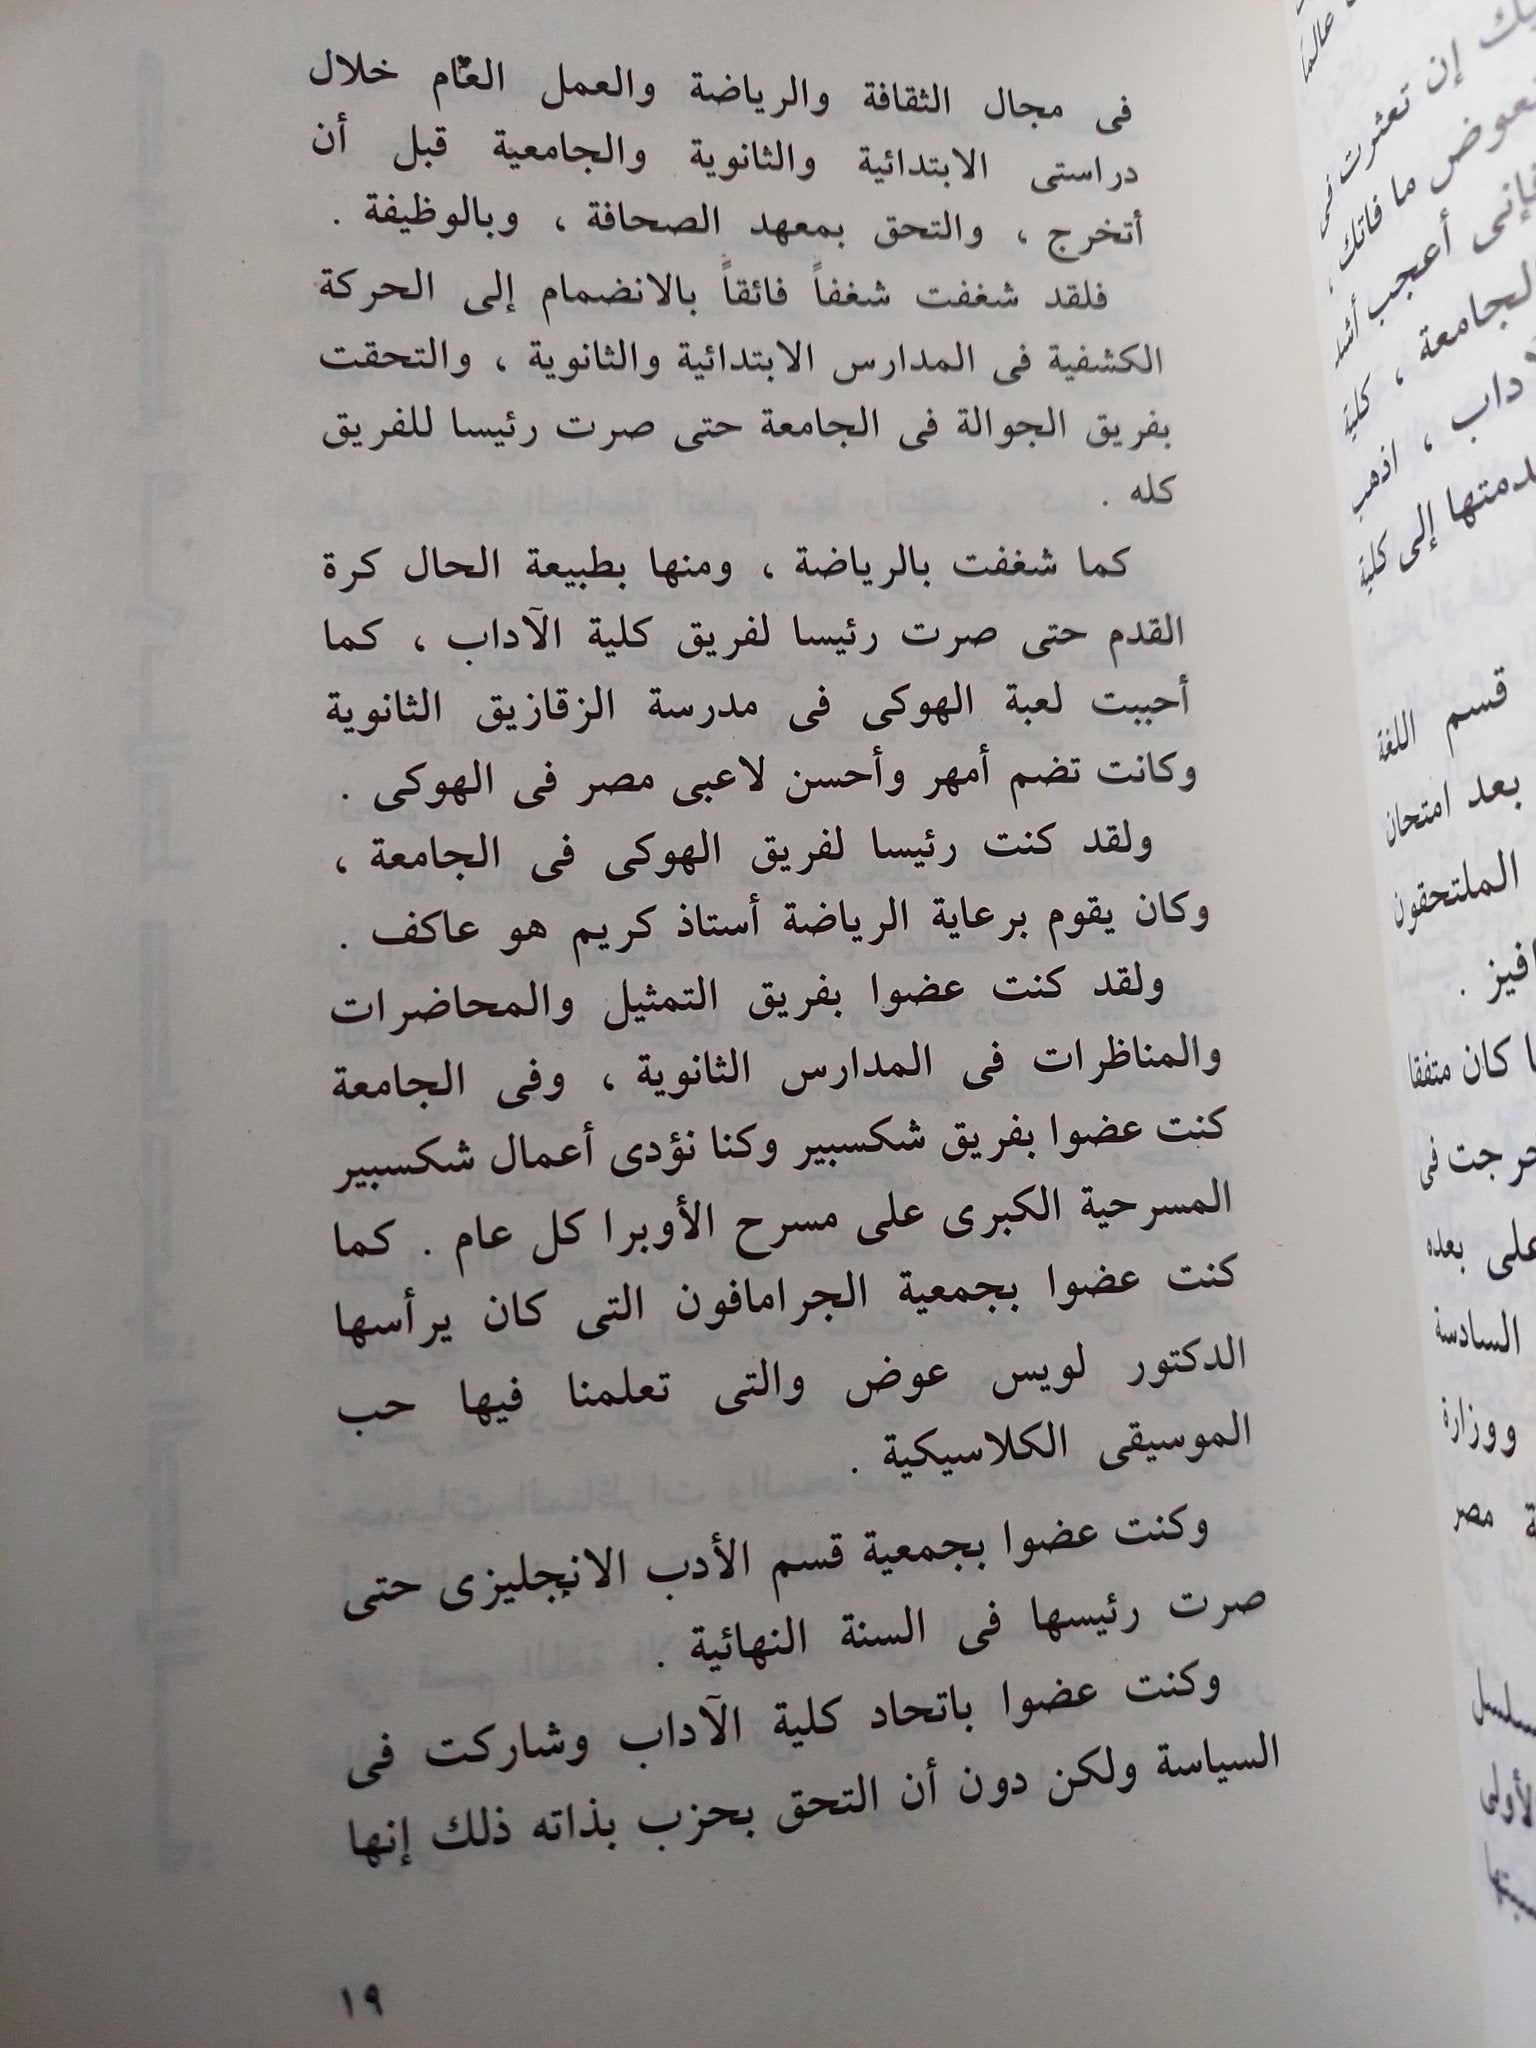 فى مجال الثقافة والرياضة والعمل العام خلال
دراستى الابتدائية والثانوية والجامعية قبل أن
أتخرج ، والتحق بمعهد الصحافة ، وبالوظيفة .
فلقد شغفت شغفاً فائقاً بالانضمام إلى الحركة
الكشفية فى المدارس الابتدائية والثانوية ، والتحقت
بفريق الجوالة فى الجامعة حتى صرت رئيسا للفريق
كله .
كما شغفت بالرياضة ، ومنها بطبيعة الحال كرة
القدم حتى صرت رئيسا لفريق كلية الآداب ، كما
أحببت لعبة الهوكى فى مدرسة الزقازيق الثانوية
وكانت تضم أمهر وأحسن لاعبى مصر فى الهوكى .
ولقد كنت رئيسا لفريق الهوكى فى الجامعة ،
وكان يقوم برعاية الرياضة أستاذ كريم هو عاكف .
ولقد كنت عضوا بفريق التمثيل والمحاضرات
والمناظرات فى المدارس الثانوية ، وفى الجامعة
كنت عضوا بفريق شكسبير وكنا نؤدى أعمال شكسبير
المسرحية الكبرى على مسرح الأوبرا كل عام . كما
كنت عضوا بجمعية الجرامافون التى كان يرأسها
الدكتور لويس عوض والتى تعلمنا فيها حب
الموسيقى الكلاسيكية .
وكنت عضوا بجمعية قسم الأدب الانجليزى حتى
صرت رئيسها فى السنة النهائية .
وكنت عضوا باتحاد كلية الآداب وشاركت فى
السياسة ولكن دون أن التحق بحزب بذاته ذلك إنها
١٩
عالما
إن تعثرت فى
ما فاتك ،
فإنى أعجب أشد
الجامعة ، كلية
، اذهب
إلى كلية
قسم اللغة
بعد امتحان
الملتحقون
كان متفقا
فى
على بعده
السادسة
ووزارة
مصر